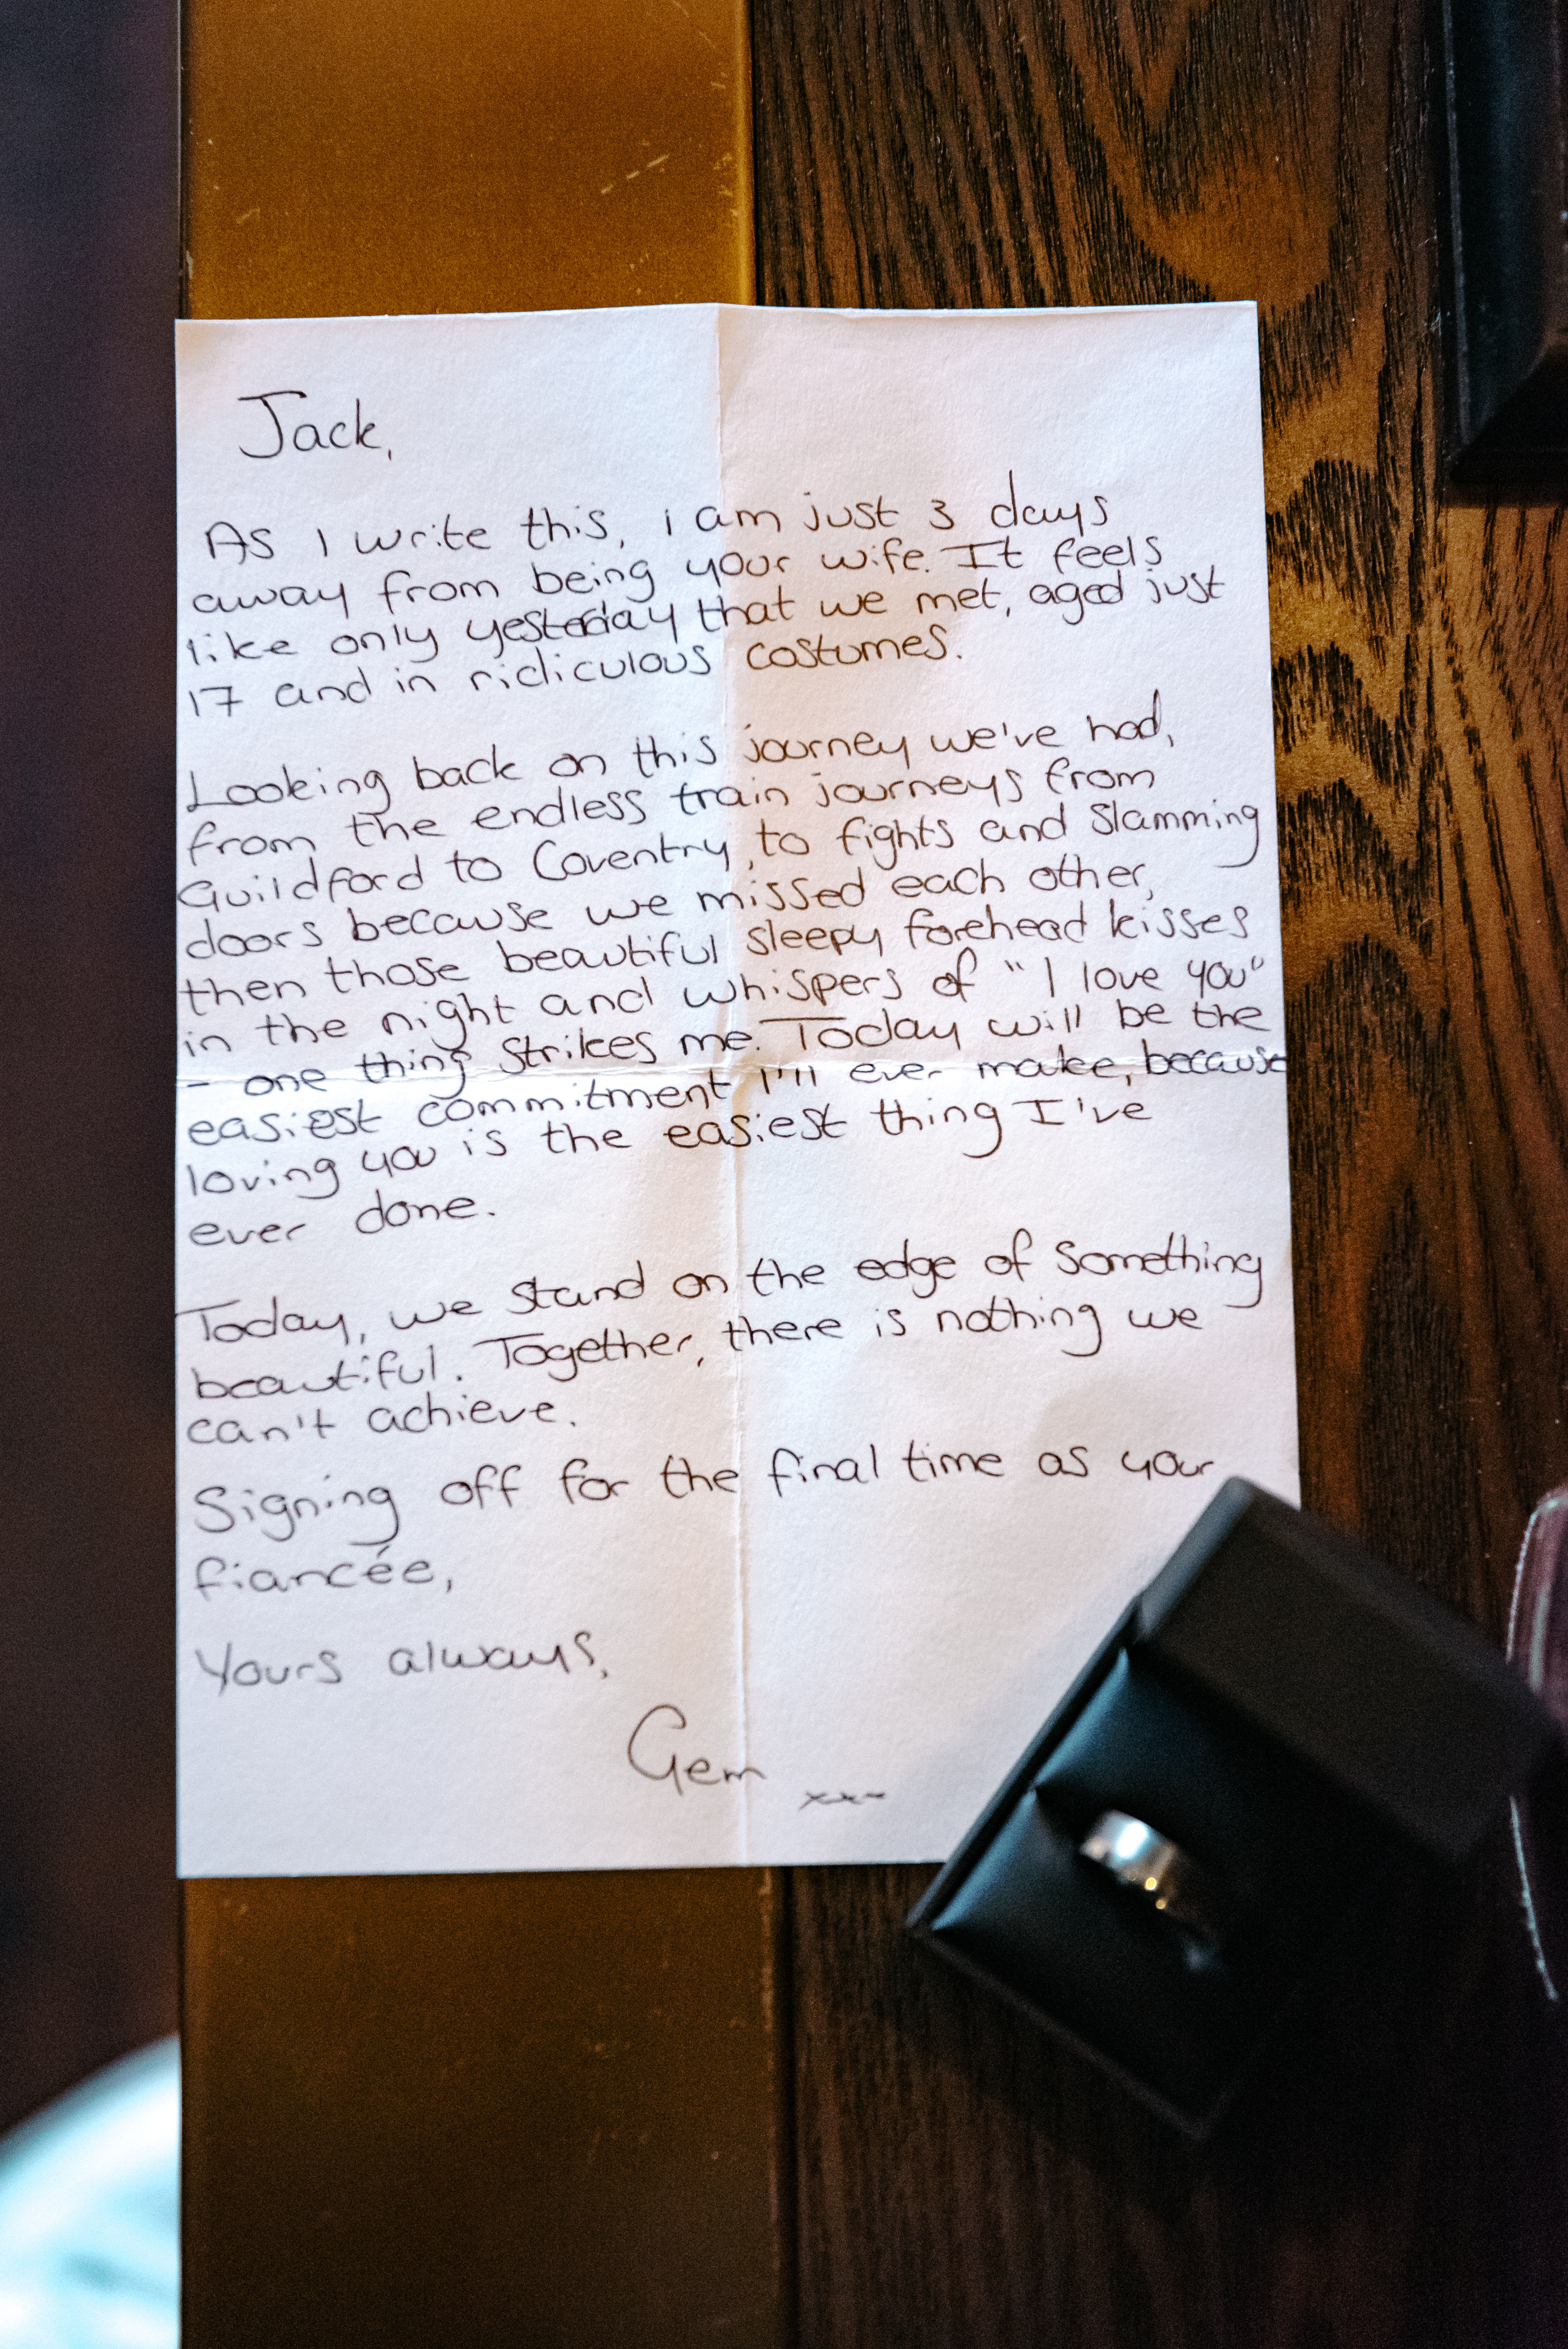 Jack,
As I write this, i am just 3 days
away from being your wife. It feels
like only yesterday that we met, aged just
17 and in ridiculous costumes.
Looking back on this journey we've had,
from the endless train journeys from
Guildford to Coventry, to fights and slamming
doors because we missed each other,
then those beautiful sleepy forehead kisses
in the night and whispers of "I love you"
- one thing strikes me. Today will be the
easiest commitment I'll ever make, because
loving you is the easiest thing I've
ever done.
Today, we stand on the edge of something
beautiful. Together, there is nothing we
can't achieve.
Signing off for the final time as your
fiancée,
Yours always,
Gem xxx